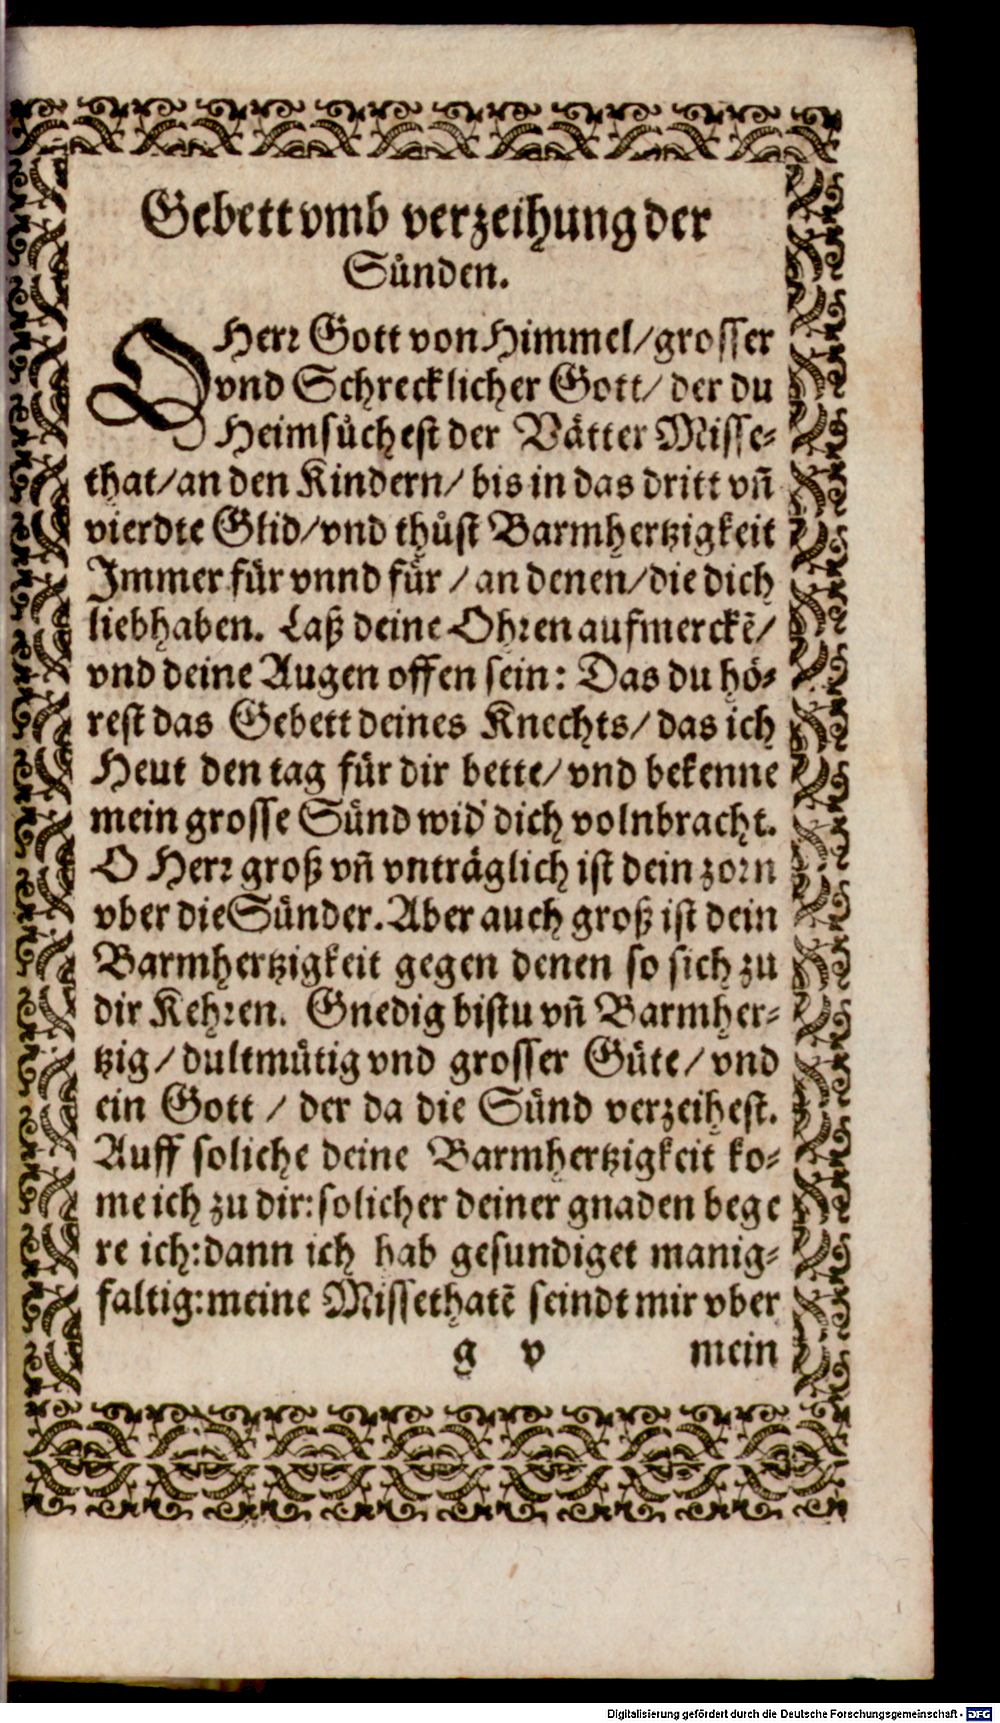 Gebett vmb verzeihung der
Sünden.
O Herr Gott von Himmel/grosser
vnd Schrecklicher Gott/ der du
Heimsůchest der Vätter Misse-
that/an den Kindern/ bis in das dritt vn̄
vierdte Glid/vnd thůst Barmhertzigkeit
Jmmer für vnnd für / an denen/die dich
liebhaben. Laß deine Ohren aufmerckē/
vnd deine Augen offen sein: Das du hö-
rest das Gebett deines Knechts/ das ich
Heut den tag für dir bette/ vnd bekenne
mein grosse Sünd wid' dich volnbracht.
O Herr groß vn̄ vnträglich ist dein zorn
vber die Sünder. Aber auch groß ist dein
Barmhertzigkeit gegen denen so sich zu
dir Kehren. Gnedig bistu vn̄ Barmher-
tzig/ dultmütig vnd grosser Güte/ vnd
ein Gott / der da die Sünd verzeihest.
Auff soliche deine Barmhertzigkeit ko-
me ich zu dir: solicher deiner gnaden bege
re ich: dann ich hab gesundiget manig-
faltig: meine Missethatē seindt mir vber
g v mein
Digitalisierung gefördert durch die Deutsche Forschungsgemeinschaft - DFG